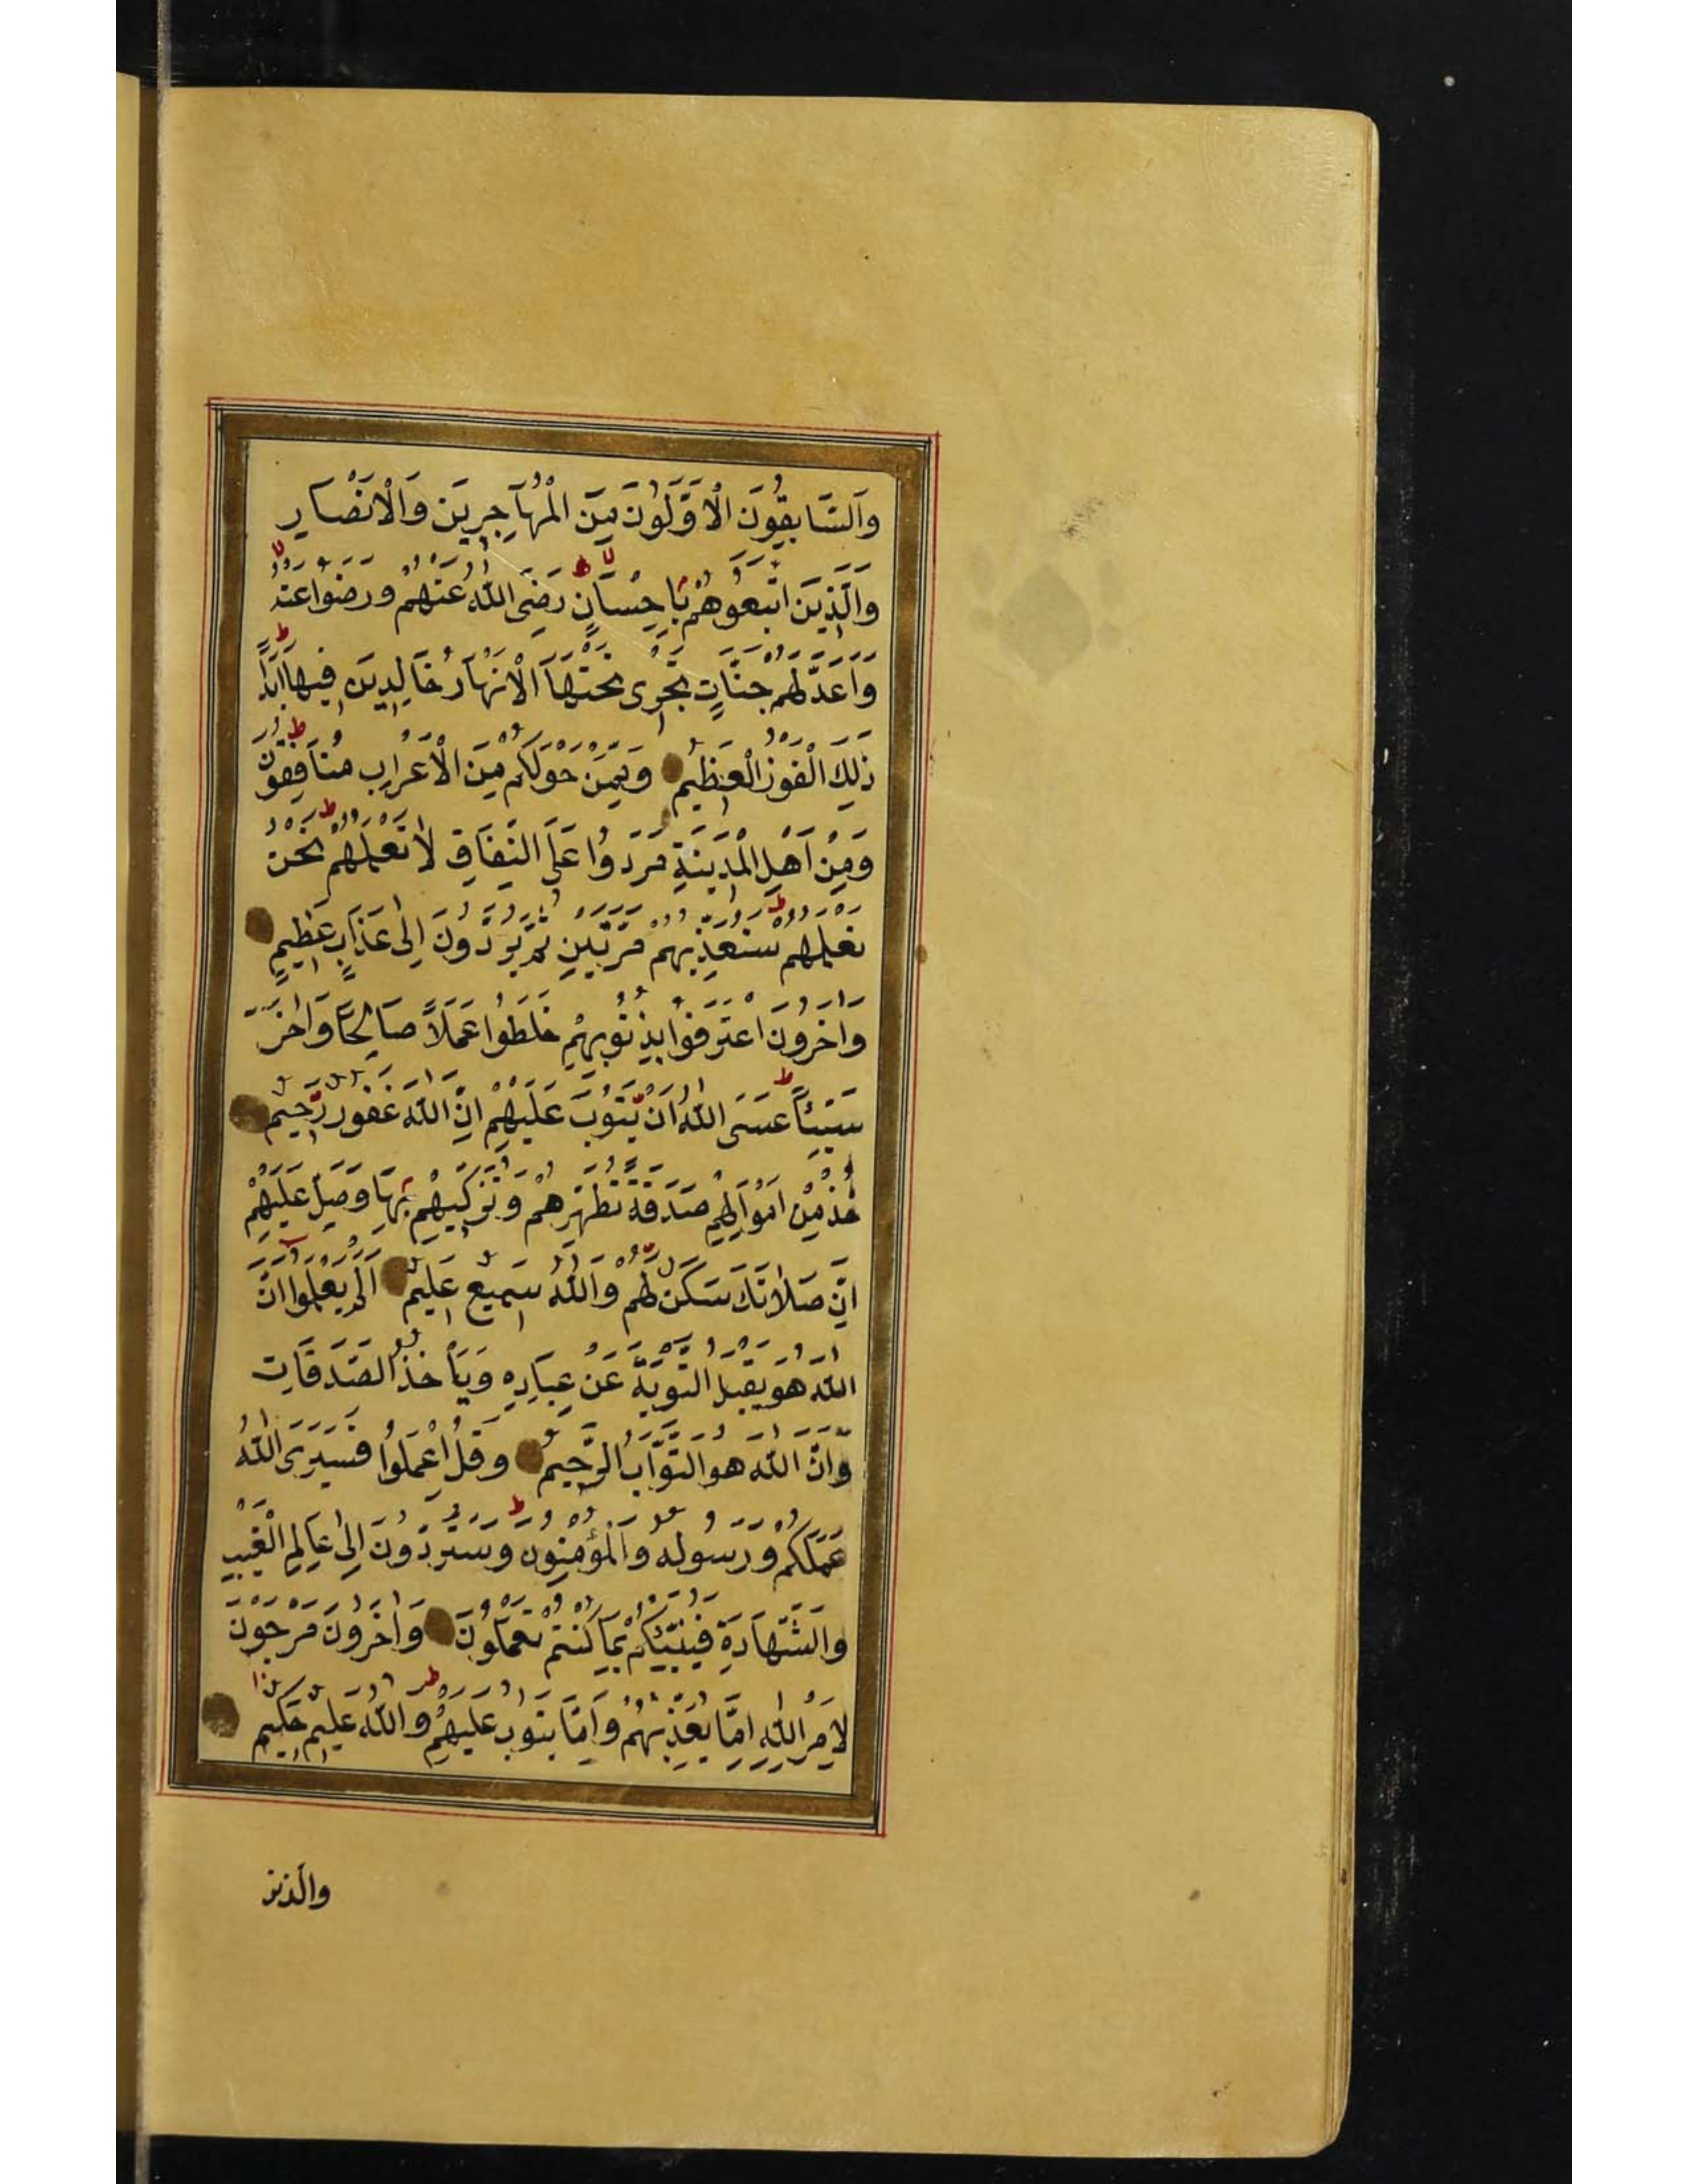 وَالسَّابِقُونَ الْاَوَّلُونَ مِنَ الْمُهَاجِرِينَ وَالْاَنْصَارِ
وَالَّذِينَ اتَّبَعُوهُمْ بِاِحْسَانٍ رَضِىَ اللّٰهُ عَنْهُمْ وَرَضُوا عَنْهُ
وَاَعَدَّ لَهُمْ جَنَّاتٍ تَجْرِى تَحْتَهَا الْاَنْهَارُ خَالِدِينَ فِيهَا اَبَدًا
ذٰلِكَ الْفَوْزُ الْعَظِيمُ وَمِمَّنْ حَوْلَكُمْ مِنَ الْاَعْرَابِ مُنَافِقُونَ
وَمِنْ اَهْلِ الْمَدِينَةِ مَرَدُوا عَلَى النِّفَاقِ لَا تَعْلَمُهُمْ نَحْنُ
نَعْلَمُهُمْ سَنُعَذِّبُهُمْ مَرَّتَيْنِ ثُمَّ يُرَدُّونَ اِلٰى عَذَابٍ عَظِيمٍ
وَاٰخَرُونَ اعْتَرَفُوا بِذُنُوبِهِمْ خَلَطُوا عَمَلًا صَالِحًا وَاٰخَرَ
سَيِّئًا عَسَى اللّٰهُ اَنْ يَتُوبَ عَلَيْهِمْ اِنَّ اللّٰهَ غَفُورٌ رَحِيمٌ
خُذْ مِنْ اَمْوَالِهِمْ صَدَقَةً تُطَهِّرُهُمْ وَتُزَكِّيهِمْ بِهَا وَصَلِّ عَلَيْهِمْ
اِنَّ صَلَاتَكَ سَكَنٌ لَهُمْ وَاللّٰهُ سَمِيعٌ عَلِيمٌ اَلَمْ يَعْلَمُوا اَنَّ
اللّٰهَ هُوَ يَقْبَلُ التَّوْبَةَ عَنْ عِبَادِهِ وَيَأْخُذُ الصَّدَقَاتِ
وَاَنَّ اللّٰهَ هُوَ التَّوَّابُ الرَّحِيمُ وَقُلِ اعْمَلُوا فَسَيَرَى اللّٰهُ
عَمَلَكُمْ وَرَسُولُهُ وَالْمُؤْمِنُونَ وَسَتُرَدُّونَ اِلٰى عَالِمِ الْغَيْبِ
وَالشَّهَادَةِ فَيُنَبِّئُكُمْ بِمَا كُنْتُمْ تَعْمَلُونَ وَاٰخَرُونَ مُرْجَوْنَ
لِاَمْرِ اللّٰهِ اِمَّا يُعَذِّبُهُمْ وَاِمَّا يَتُوبُ عَلَيْهِمْ وَاللّٰهُ عَلِيمٌ حَكِيمٌ
والذين